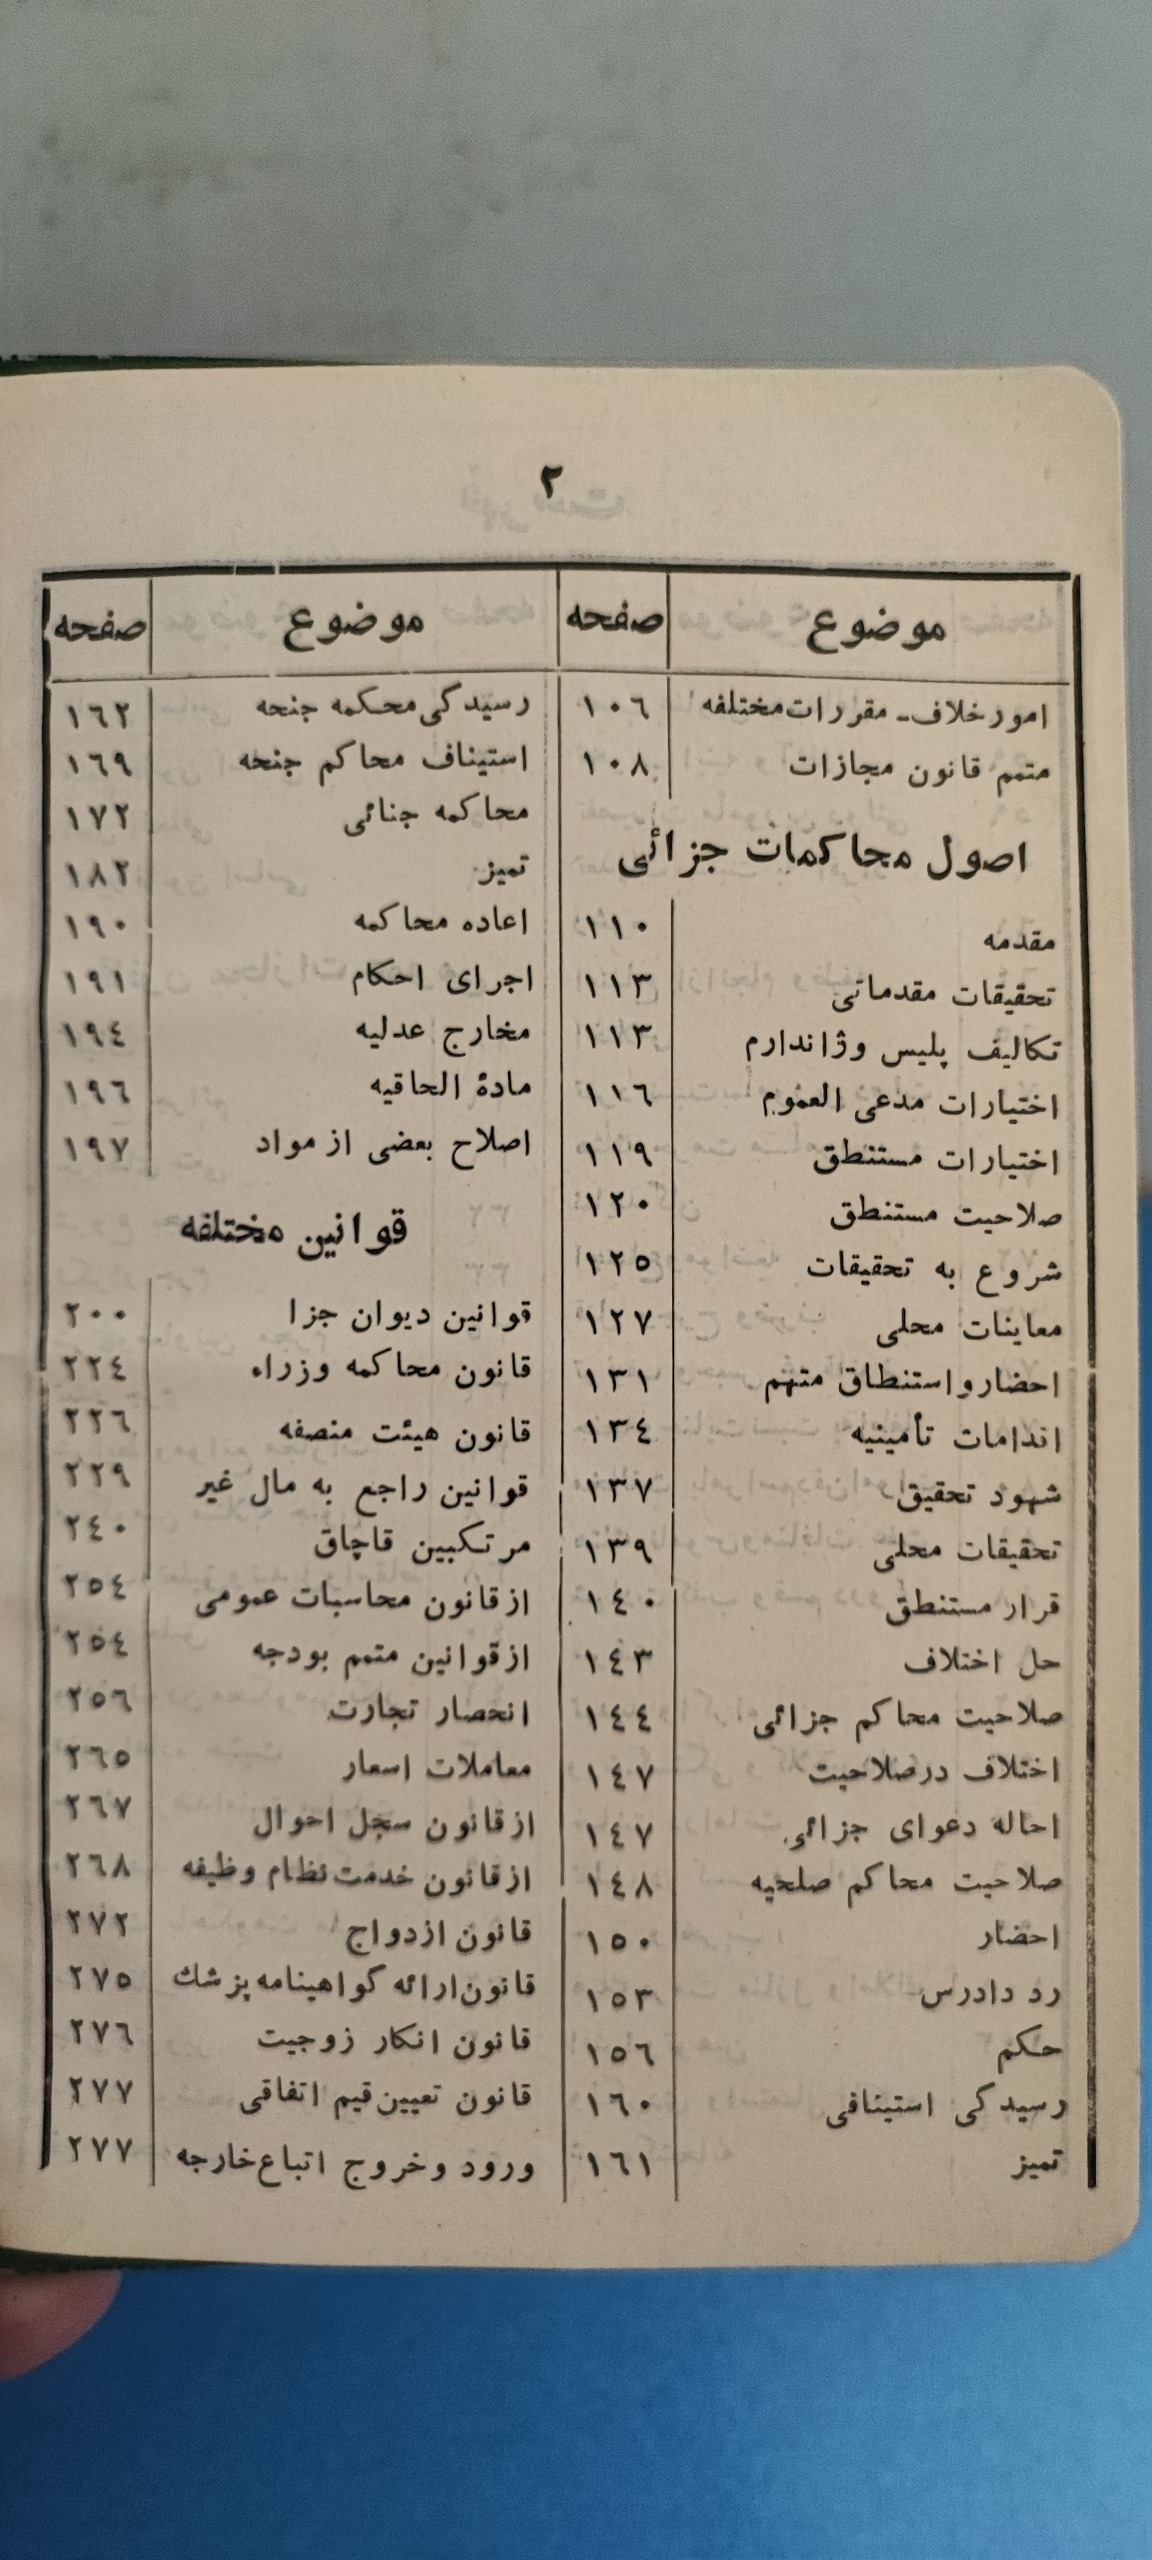 ٢
موضوع صفحه
امور خلاف ـ مقررات مختلفه ١٠٦
متمم قانون مجازات ١٠٨
اصول محاکمات جزائی
مقدمه ١١٠
تحقیقات مقدماتی ١١٣
تکالیف پلیس وژاندارم ١١٣
اختیارات مدعی العموم ١١٦
اختیارات مستنطق ١١٩
صلاحیت مستنطق ١٢٠
شروع به تحقیقات ١٢٥
معاینات محلی ١٢٧
احضار و استنطاق متهم ١٣١
اندامات تأمینیه ١٣٤
شهود تحقیق ١٣٧
تحقیقات محلی ١٣٩
قرار مستنطق ١٤٠
حل اختلاف ١٤٣
صلاحیت محاکم جزائی ١٤٤
اختلاف در صلاحیت ١٤٧
احاله دعوای جزائی ١٤٧
صلاحیت محاکم صلحیه ١٤٨
احضار ١٥٠
رد دادرس ١٥٣
حکم ١٥٦
رسیدگی استینافی ١٦٠
تمیز ١٦١
موضوع صفحه
رسیدگی محکمه جنحه ١٦٢
استیناف محاکم جنحه ١٦٩
محاکمه جنائی ١٧٢
تمیز ١٨٢
اعاده محاکمه ١٩٠
اجرای احکام ١٩١
مخارج عدلیه ١٩٤
مادۀ الحاقیه ١٩٦
اصلاح بعضی از مواد ١٩٧
قوانین مختلفه
قوانین دیوان جزا ٢٠٠
قانون محاکمه وزراء ٢٢٤
قانون هیئت منصفه ٢٢٦
قوانین راجع به مال غیر ٢٢٩
مرتکبین قاچاق ٢٤٠
از قانون محاسبات عمومی ٢٥٤
از قوانین متمم بودجه ٢٥٤
انحصار تجارت ٢٥٦
معاملات اسعار ٢٦٥
از قانون سجل احوال ٢٦٧
از قانون خدمت نظام وظیفه ٢٦٨
قانون ازدواج ٢٧٢
قانون ارائه گواهینامه پزشك ٢٧٥
قانون انکار زوجیت ٢٧٦
قانون تعیین قیم اتفاقی ٢٧٧
ورود و خروج اتباع خارجه ٢٧٧